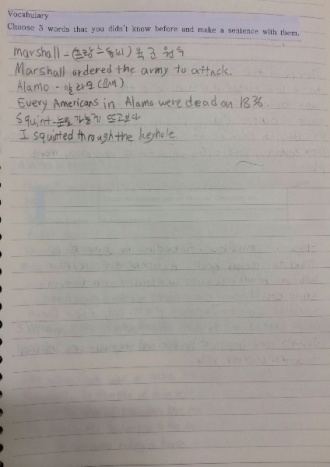 Vocabulary
Choose 3 words that you didn't know before and make a sentence with them.
Marshall - (프랑스 등의) 육군 원수
Marshall ordered the army to attack.
Alamo - 알라모 (요새)
Every Americans in Alamo were dead on 1836.
Squint - 눈을 가늘게 뜨고보다
I squinted through the keyhole